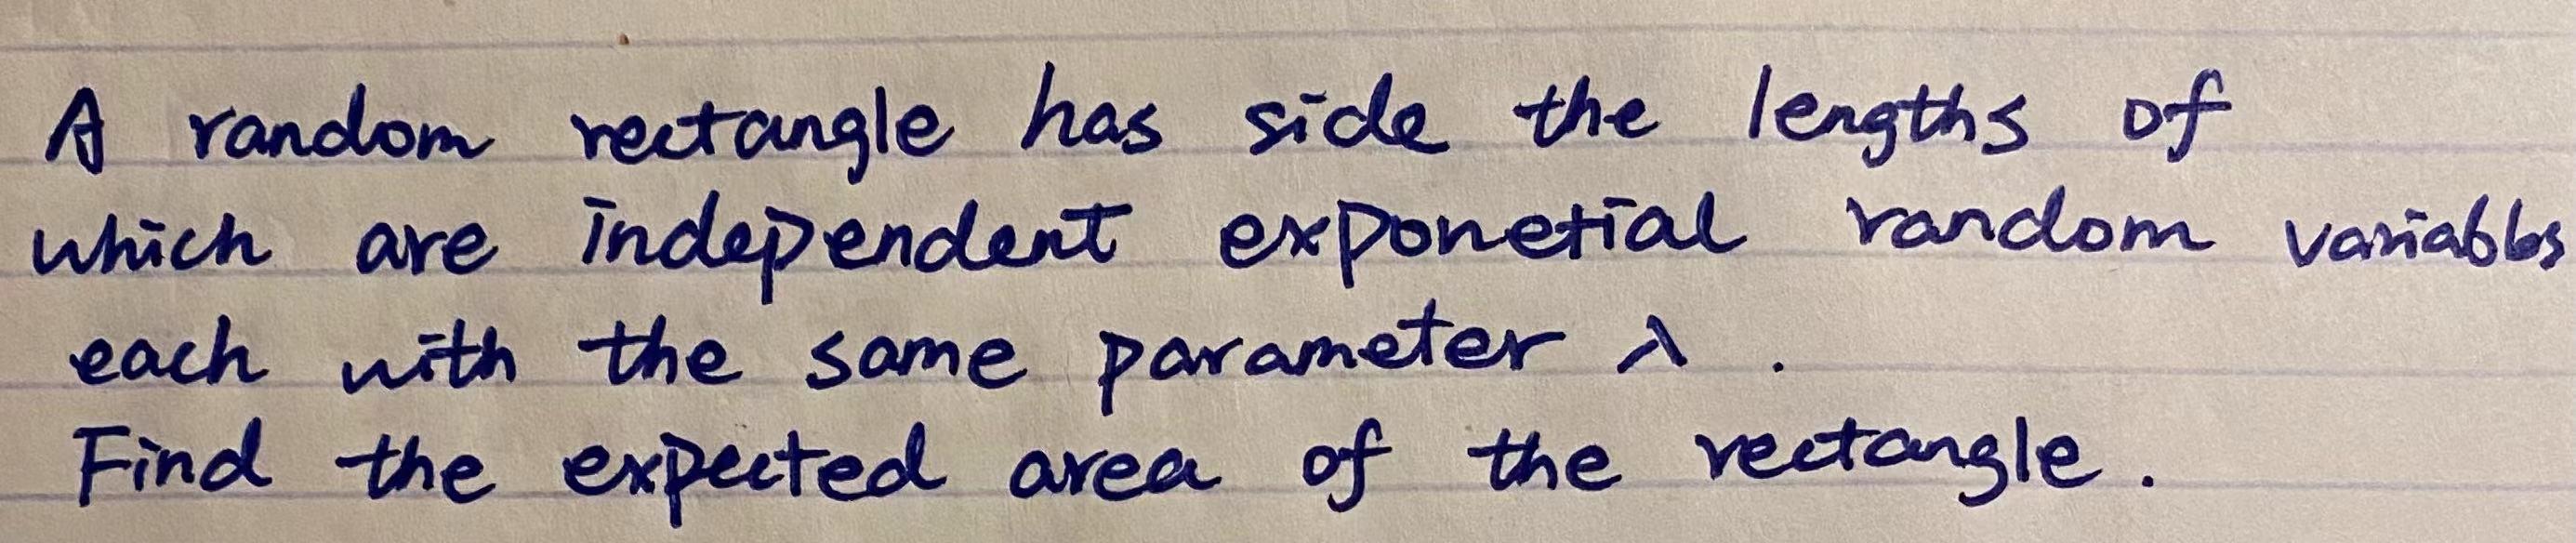 A random rectangle has side the lengths of
which are independent exponetial random variables
each with the same parameter λ .
Find the expected area of the rectangle.